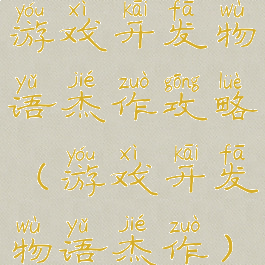 yóu xì kāi fā wù
游戏开发物
yǔ jié zuò gōng lüè
语杰作攻略
yóu xì kāi fā
（游戏开发
wù yǔ jié zuò
物语杰作）